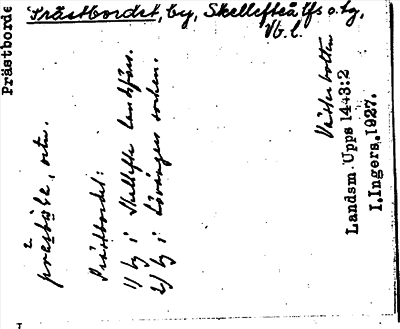 Prästbordet, by, Skellefteå lfs o. tg,
Vb. l.
Prästborde
präsbǫ̀łe, ortn.
Prästbordet:
1) by i Skellefte landsförs.
2) by i Lövångers socken.
Västerbotten
Landsm. Upps 1443:2
I.Ingers,1927.